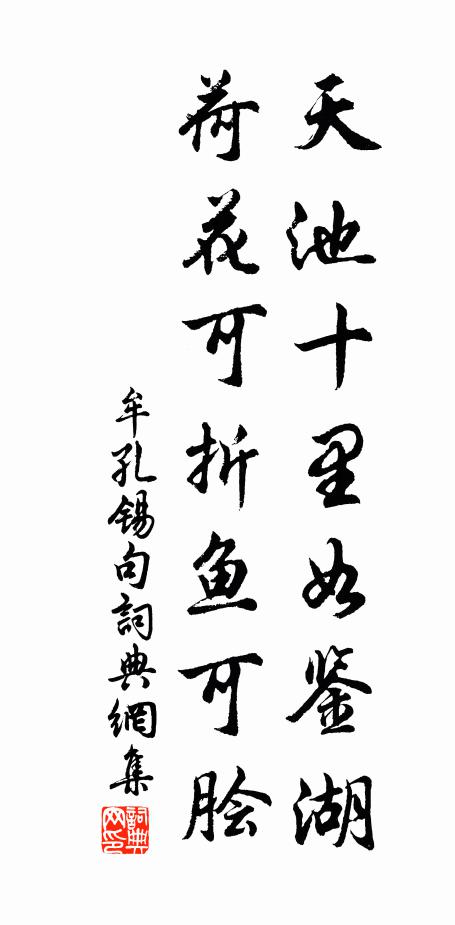 天池十里如鉴湖
荷花可折鱼可脍
牟孔锡句詞典網集
詞典网印